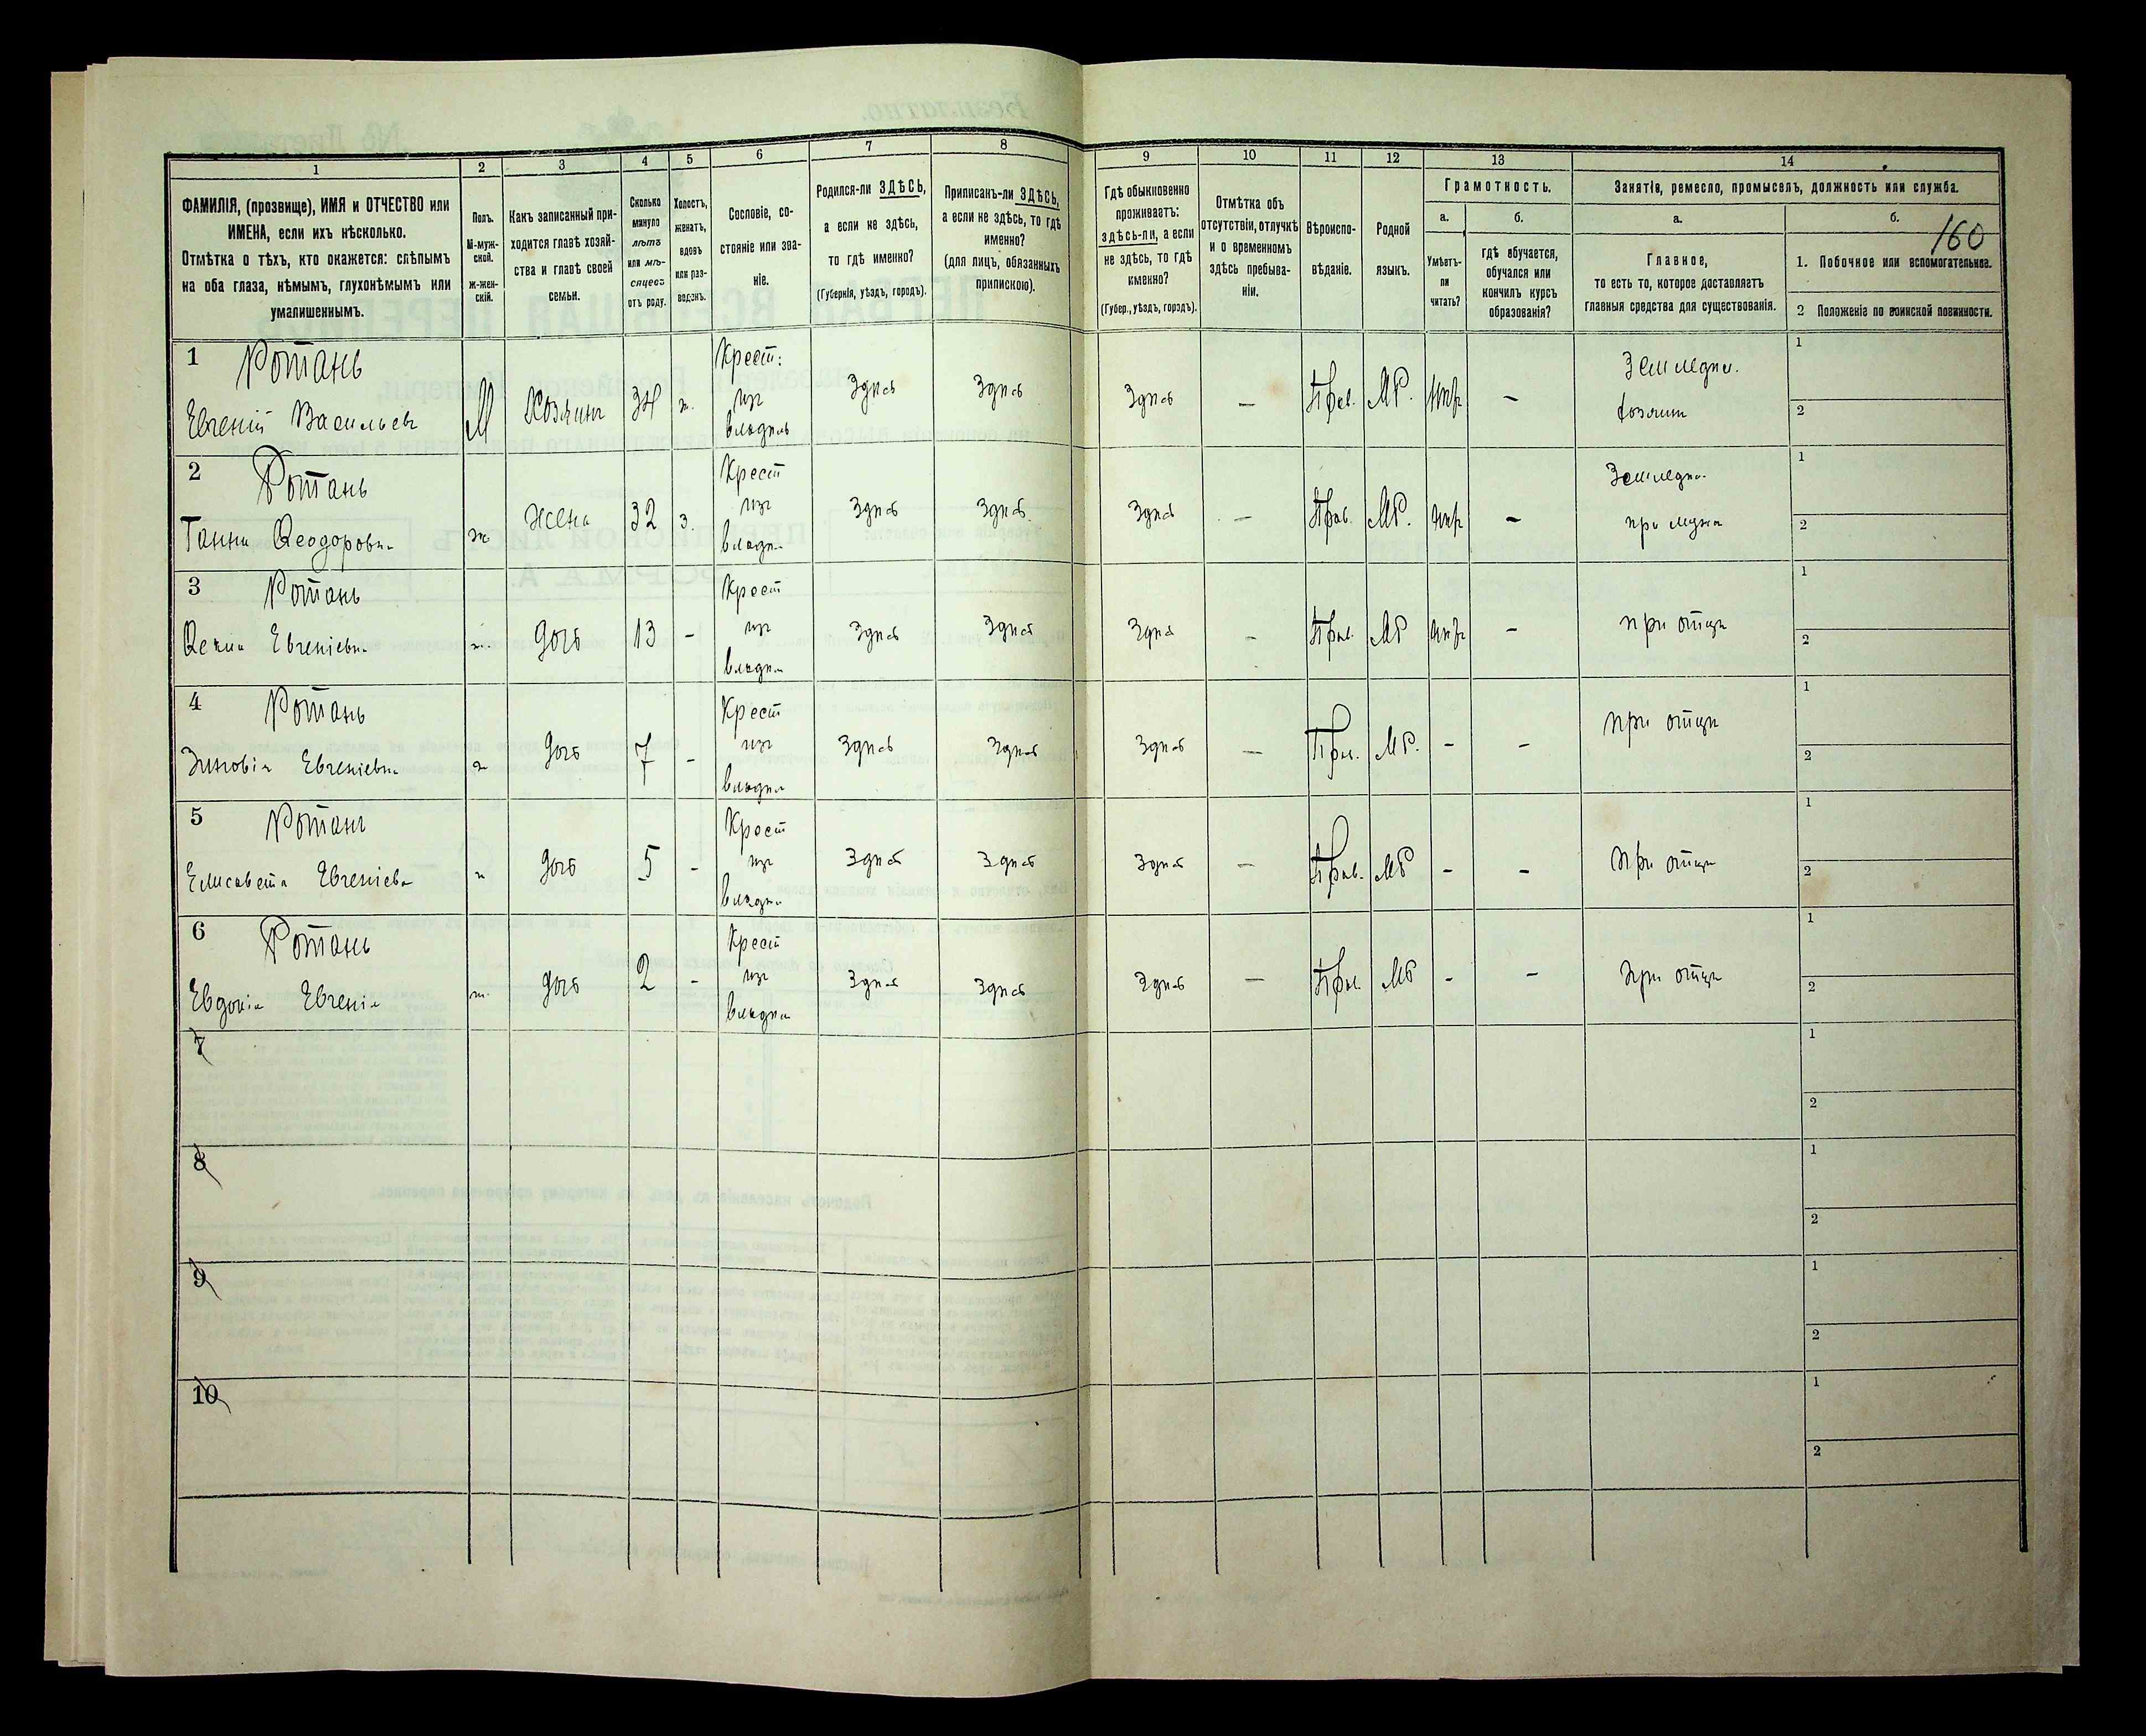 160
1
2
3
4
5
6
7
8
9
10
11
12
13
14
ФАМИЛІЯ, (прозвище), ИМЯ и ОТЧЕСТВО или
ИМЕНА, если ихъ нѣсколько.
Отмѣтка о тѣхъ, кто окажется: слѣпымъ
на оба глаза, нѣмымъ, глухонѣмымъ или
умалишеннымъ.
Полъ.
М-муж-
ской.
ж-жен-
скій.
Какъ записанный при-
ходится главѣ хозяй-
ства и главѣ своей
семьи.
Сколько
минуло
лѣтъ
или мѣ-
сяцевъ
отъ роду.
Холостъ,
женатъ,
вдовъ
или раз-
веденъ.
Сословіе, со-
стояніе или зва-
ніе.
Родился-ли ЗДѢСЬ,
а если не здѣсь,
то гдѣ именно?
(Губернія, уѣздъ, городъ).
Приписанъ-ли ЗДѢСЬ,
а если не здѣсь, то гдѣ
именно?
(для лицъ, обязанныхъ
припискою).
Гдѣ обыкновенно
проживаетъ:
здѣсь-ли, а если
не здѣсь, то гдѣ
именно?
(Губер., уѣздъ, городъ).
Отмѣтка объ
отсутствіи, отлучкѣ
и о временномъ
здѣсь пребыва-
ніи.
Вѣроиспо-
вѣданіе.
Родной
языкъ.
Грамотность.
а.
б.
Умѣетъ-
ли
читать?
гдѣ обучается,
обучался или
кончилъ курсъ
образованія?
Занятіе, ремесло, промыселъ, должность или служба.
а.
б.
Главное,
то есть то, которое доставляетъ
главныя средства для существованія.
1. Побочное или вспомогательное.
2 Положеніе по воинской повинности.
1
Ротань
Евгеній Васильевъ
М
Хозяинъ
34
ж.
Крест:
изъ
владѣль
Здѣсь
Здѣсь
Здѣсь
—
Прав.
МР.
-
Земледѣл.
хозяинъ
1
2
2
Ротань
Ганна Ѳеодоровна
ж
жена
32
з.
Крест
изъ
владѣл
Здѣсь
Здѣсь
Здѣсь
—
Прав.
МР.
-
Земледѣл.
при мужѣ
1
2
3
Ротань
Евгеніевна
ж.
дочь
13
-
Крест
изъ
владѣл
Здѣсь
Здѣсь
Здѣсь
-
Прав.
МР
-
при отцѣ
1
2
4
Ротань
Зиновія Евгеніевна
ж
дочь
7
-
Крест
изъ
владѣл
Здѣсь
Здѣсь
Здѣсь
—
Прав.
МР.
-
-
при отцѣ
1
2
5
Ротань
Елисавета Евгеніева
ж
дочь
5
-
Крест
изъ
владѣл
Здѣсь
Здѣсь
Здѣсь
—
Прав.
МР
-
-
При отцѣ
1
2
6
Ротань
Евдокія Евгенія
ж.
дочь
2
-
Крест
изъ
владѣл
Здѣсь
Здѣсь
Здѣсь
—
Прав.
МР
-
-
При отцѣ
1
2
7
1
2
8
1
2
9
1
2
10
1
2